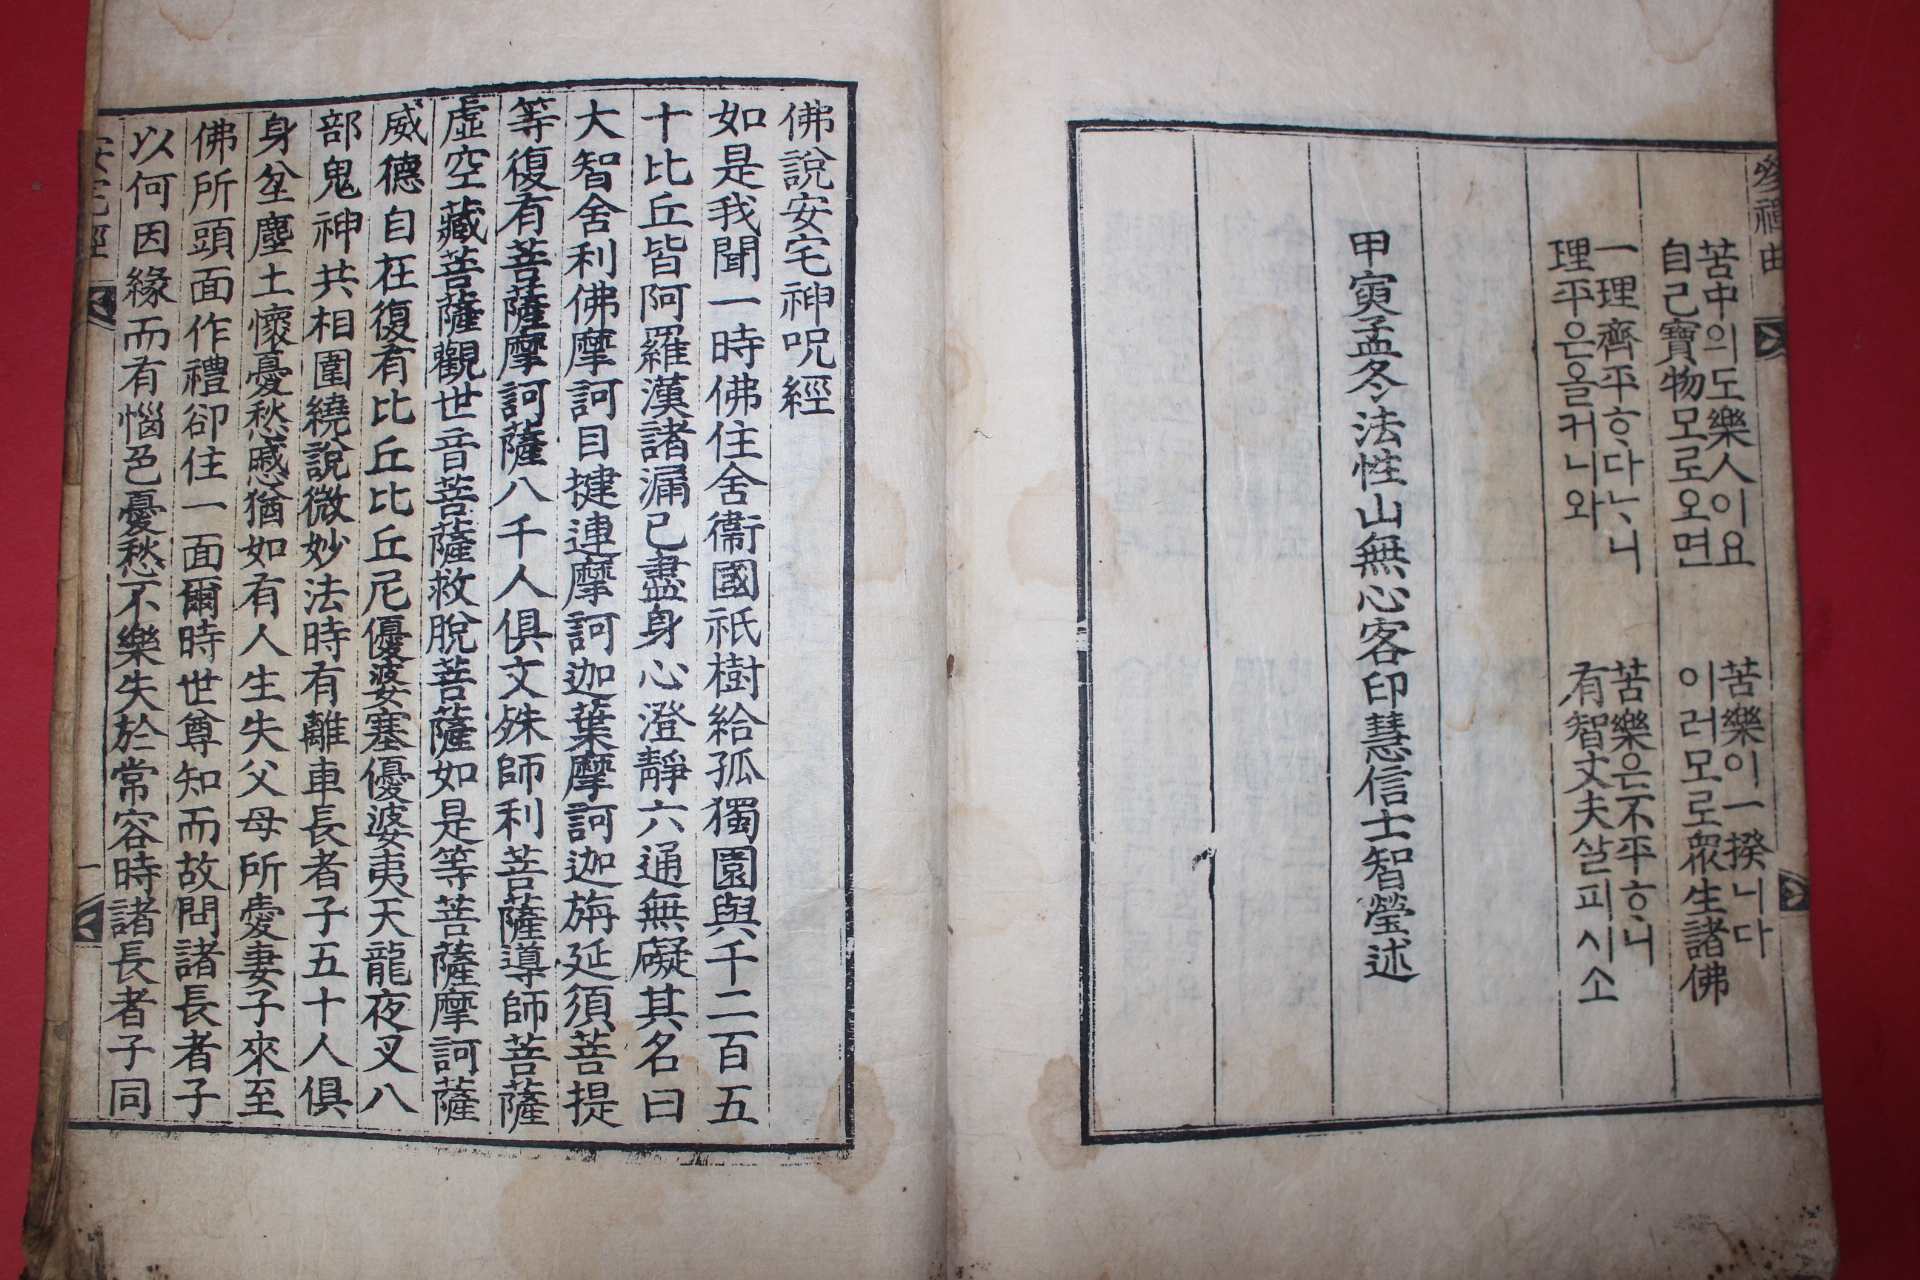 參禪曲
苦中의도樂人이요
自己寶物모로오면
苦樂이一揆니다
이러모로衆生諸佛
一理齊平ᄒᆞ다ᄂᆞ니
理平은올커니와
苦樂은不平ᄒᆞ니
有智丈夫살피시소
甲寅孟冬法性山無心客印慧信士智瑩述
佛說安宅神呪經
如是我聞一時佛住舍衞國祇樹給孤獨園與千二百五
十比丘皆阿羅漢諸漏已盡身心澄靜六通無礙其名曰
大智舍利佛摩訶目揵連摩訶迦葉摩訶迦旃延須菩提
等復有菩薩摩訶薩八千人俱文殊師利菩薩導師菩薩
虛空藏菩薩觀世音菩薩救脫菩薩如是等菩薩摩訶薩
威德自在復有比丘比丘尼優婆塞優婆夷天龍夜叉八
部鬼神共相圍繞說微妙法時有離車長者子五十人俱
身坌塵土懷憂愁慼猶如有人生失父母所愛妻子來至
佛所頭面作禮卻住一面爾時世尊知而故問諸長者子
以何因緣而有惱色憂愁不樂失於常容時諸長者子同
安宅經
一